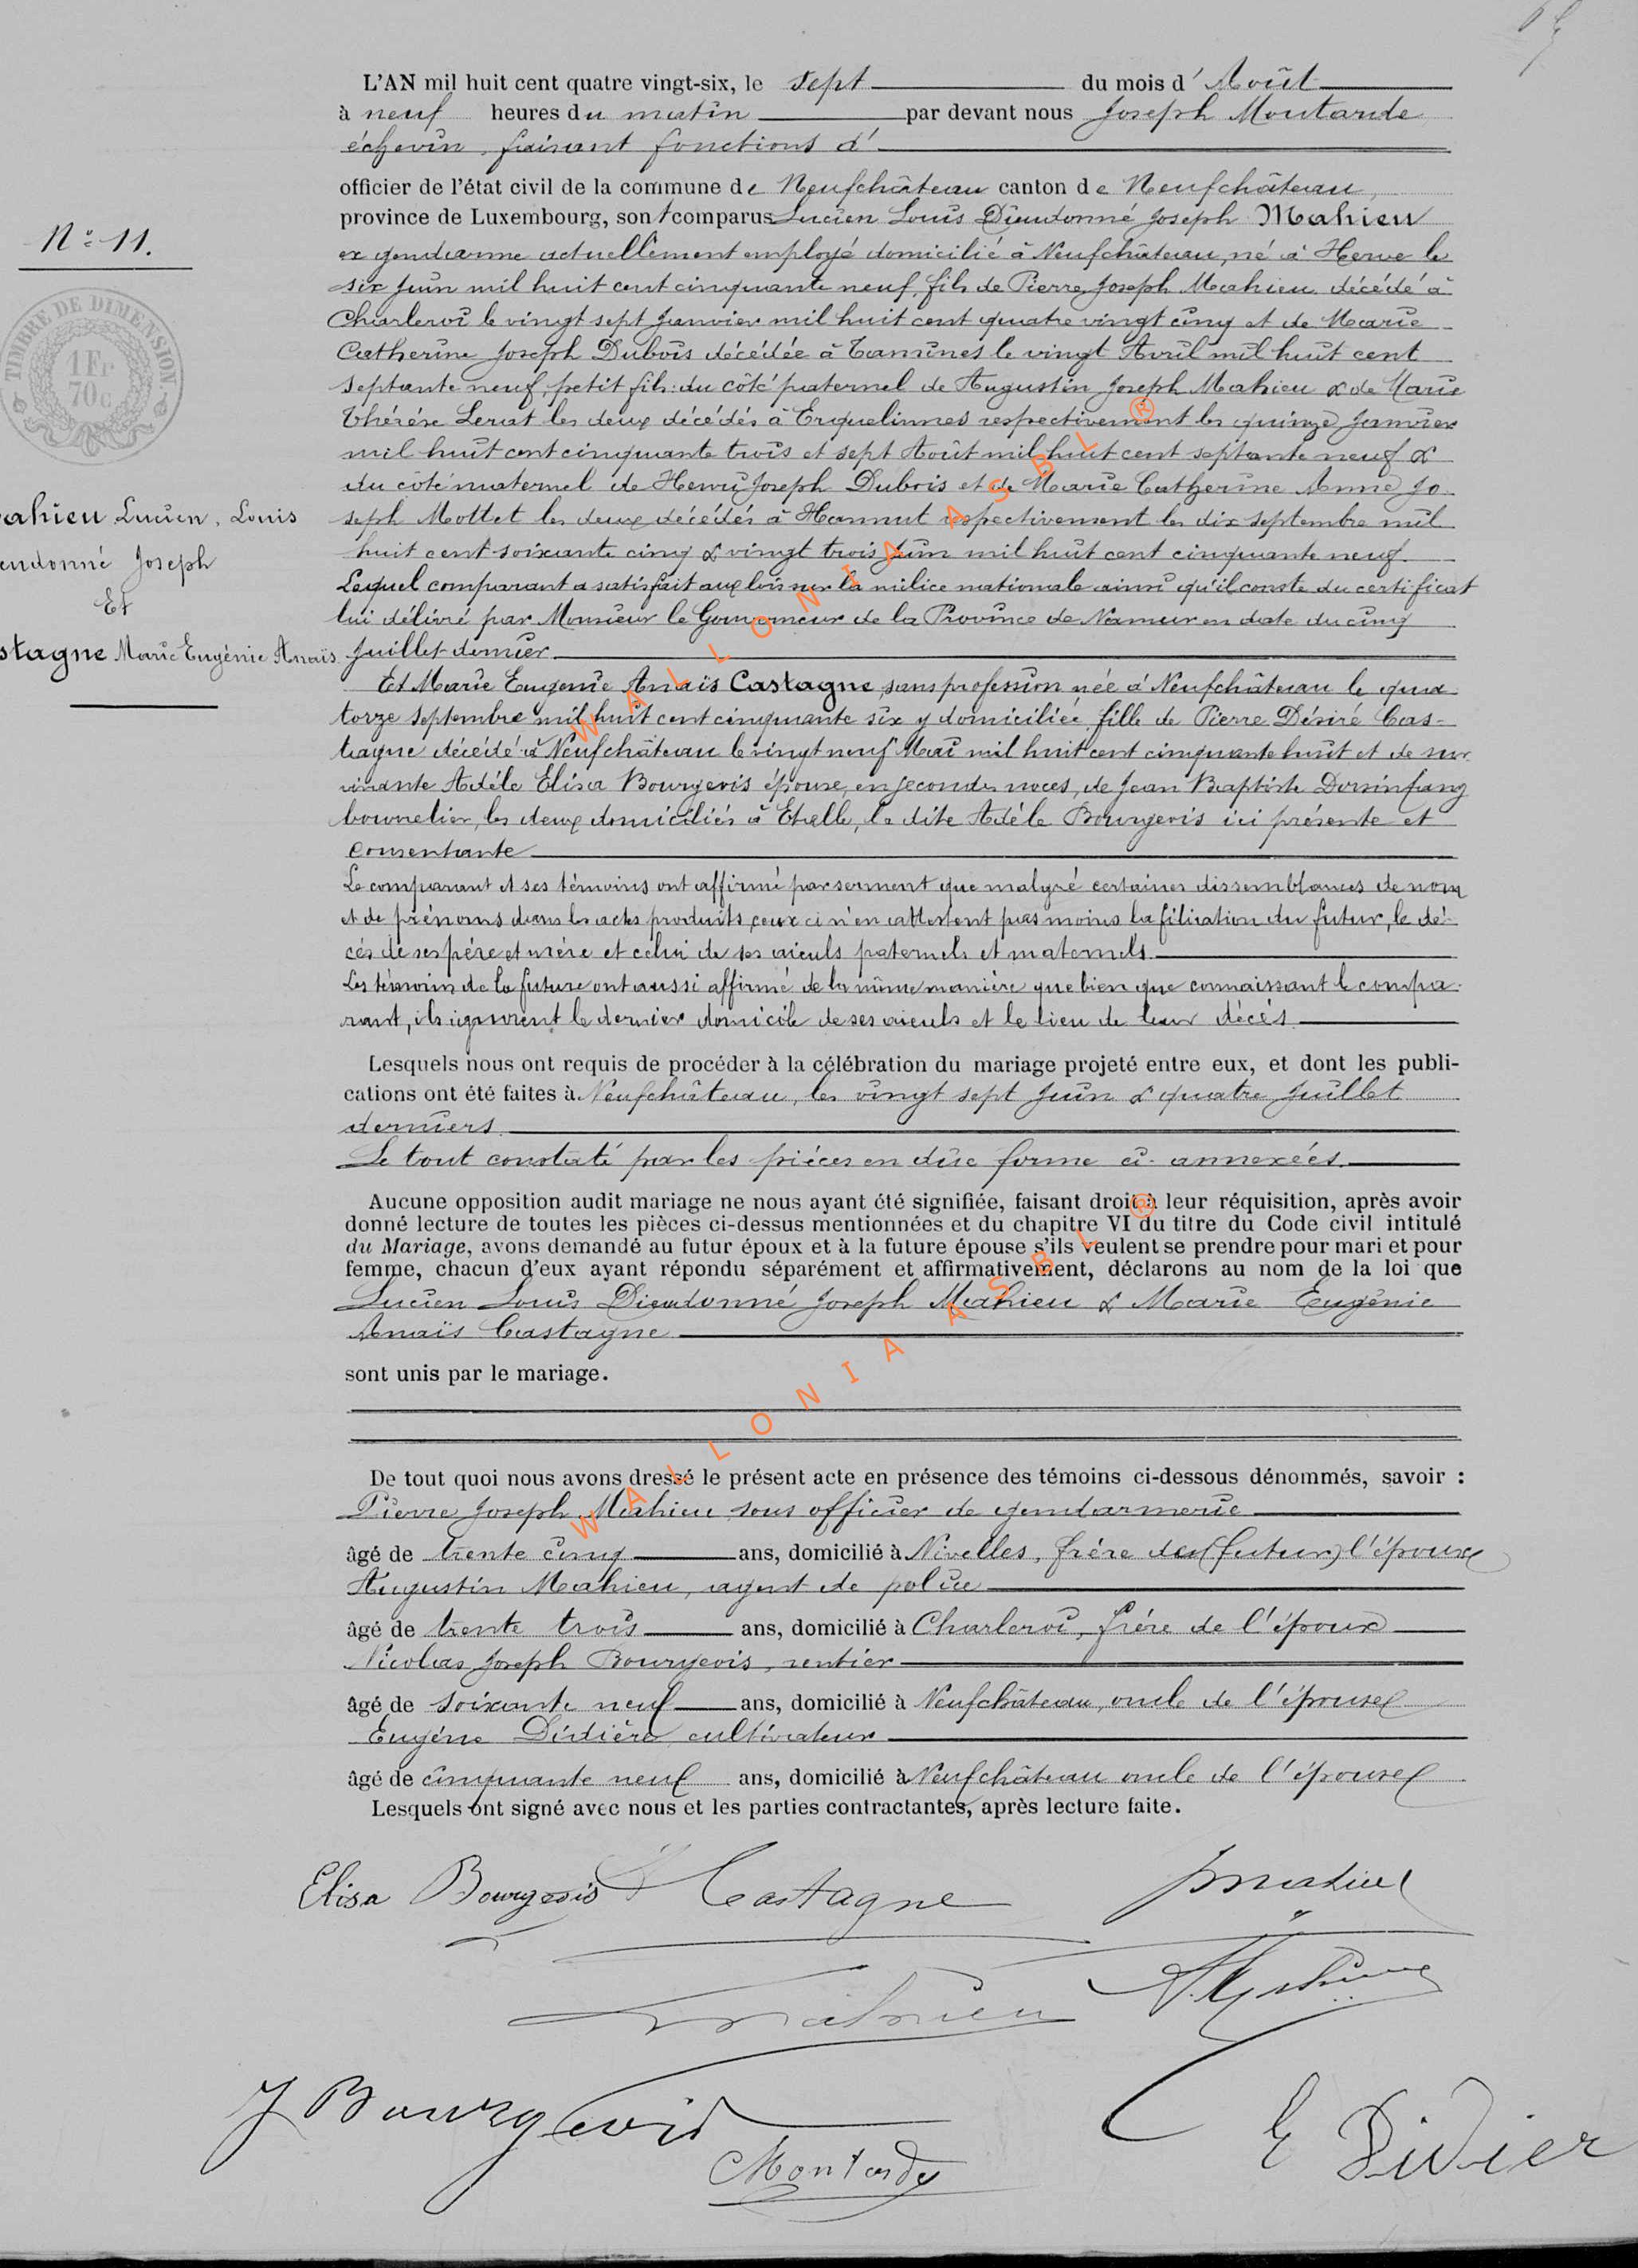 L'AN mil huit cent quatre vingt-six, le sept du mois d'Août
à neuf heures du matin par devant nous Joseph Moutarde
échevin, faisant fonctions d'
officier de l'état civil de la commune de Neufchâteau canton de Neufchâteau,
province de Luxembourg, sont comparus Lucien Louis Dieudonné Joseph Mahieu
N° 11.
ex gendarme actuellement employé domicilié à Neufchâteau, né à Herve le
six Juin mil huit cent cinquante neuf, fils de Pierre Joseph Mahieu décédé à
Charleroi le vingt sept Janvier mil huit cent quatre vingt cinq et de Marie
TIMBRE DE DIMENSION.
1 Fr
70 c
Catherine Joseph Dubois décédée à Tamines le vingt Avril mil huit cent
septante neuf, petit fils: du côté paternel de Augustin Joseph Mahieu & de Marie
Thérèse Leriat les deux décédés à Erquelinnes respectivement les quinze Janvier
mil huit cent cinquante trois et sept Août mil huit cent septante neuf &
du côté maternel de Henri Joseph Dubois et de Marie Catherine Anne Jo-
seph Mottet les deux décédés à Hannut respectivement les dix septembre mil
huit cent soixante cinq & vingt trois Juin mil huit cent cinquante neuf.
Lequel comparant a satisfait aux lois sur la milice nationale ainsi qu'il conste du certificat
lui délivré par Monsieur le Gouverneur de la Province de Namur en date du cinq
Juillet dernier
ahieu Lucien, Louis
eudonné Joseph
Et
stagne Marie Eugénie Anaïs
Et Marie Eugenie Anaïs Castagne, sans profession née à Neufchâteau le qua
torze septembre mil huit cent cinquante six y domiciliée, fille de Pierre Désiré Cas-
tagne décédé à Neufchâteau le vingt neuf Mai mil huit cent cinquante huit et de sur
vivante Adéle Elisa Bourgeois épouse, en secondes noces, de Jean Baptiste
bourrelier, les deux domiciliés à Etalle, la dite Adéle Bourgeois ici présente et
consentante
Le comparant et ses témoins ont affirmé par serment que malgré certaines dissemblances de nom
et de prénoms dans les actes produits, ceux ci n'en attestent pas moins la filiation du futur, le dé-
cés de ses pére et mére et celui de ses aieuls paternels et maternels.
Les témoins de la future ont aussi affirmé de la même manière que bien que connaissant le compa-
rant, ils ignorent le dernier domicile de ses aieuls et le lieu de leur décés.
Lesquels nous ont requis de procéder à la célébration du mariage projeté entre eux, et dont les publi-
cations ont été faites à Neufchâteau, les vingt sept Juin & quatre Juillet
derniers.
Le tout constaté par les piéces en dûe forme ci-annexées.
Aucune opposition audit mariage ne nous ayant été signifiée, faisant droit à leur réquisition, après avoir
donné lecture de toutes les pièces ci-dessus mentionnées et du chapitre VI du titre du Code civil intitulé
du Mariage, avons demandé au futur époux et à la future épouse s'ils veulent se prendre pour mari et pour
femme, chacun d'eux ayant répondu séparément et affirmativement, déclarons au nom de la loi que
Lucien Louis Dieudonné Joseph Mahieu & Marie Eugénie
Anaïs Castagne
sont unis par le mariage.
De tout quoi nous avons dressé le présent acte en présence des témoins ci-dessous dénommés, savoir :
Pierre Joseph Mahieu, sous officier de gendarmerie
âgé de trente cinq ans, domicilié à Nivelles, frére de (futur) l'époux
Augustin Mahieu, agent de police
âgé de trente trois ans, domicilié à Charleroi, frére de l'époux
Nicolas Joseph Bourgeois, rentier
âgé de soixante neuf ans, domicilié à Neufchâteau, oncle de l'épouse
Eugéne Didière, cultivateur
âgé de cinquante neuf ans, domicilié à Neufchâteau oncle de l'épouse
Lesquels ont signé avec nous et les parties contractantes, après lecture faite.
Elisa Bourgeois Castagne Jmahieu
Mahieu
J Bourgeois
Moutarde
E Didier
WALLONIA ASBL ®
WALLONIA ASBL ®